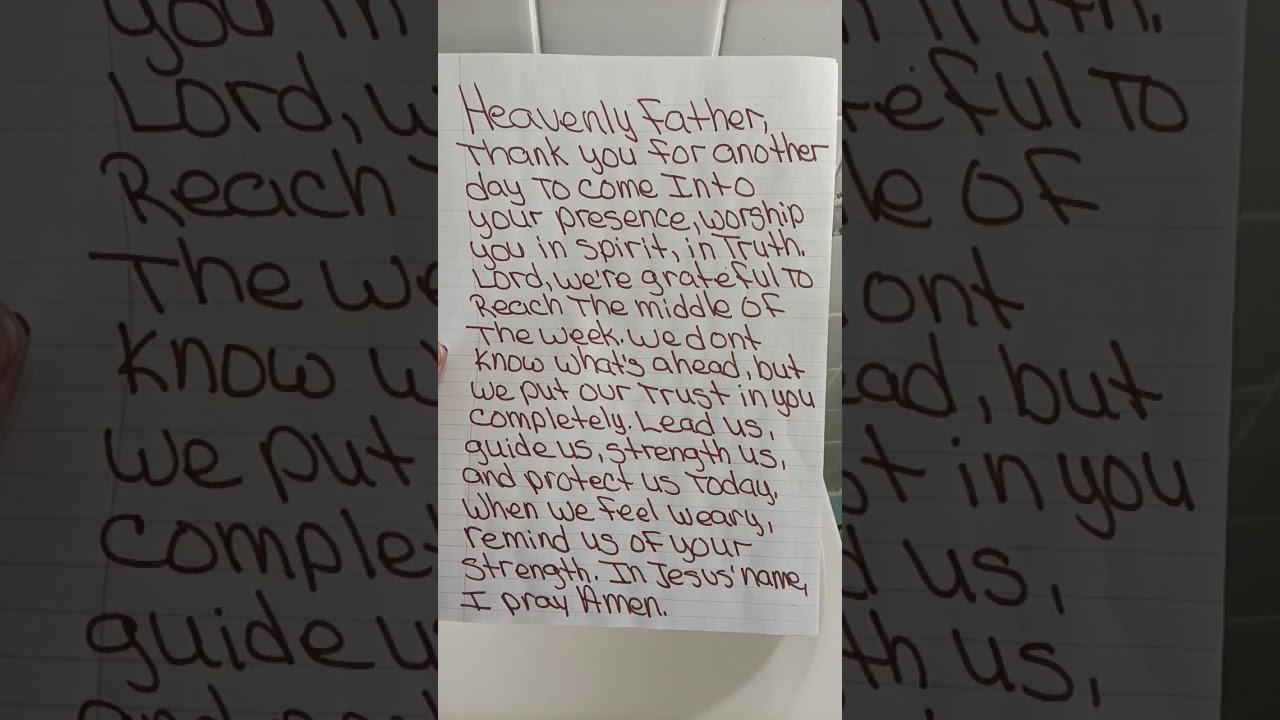 Heavenly Father,
Thank you for another
day To come Into
your presence, worship
you in spirit, in Truth.
Lord, we're grateful To
Reach The middle of
The week. We dont
know what's ahead, but
we put our Trust in you
completely. Lead us,
guide us, strength us,
and protect us Today.
When we feel weary,
remind us of your
strength. In Jesus' name,
I pray Amen.